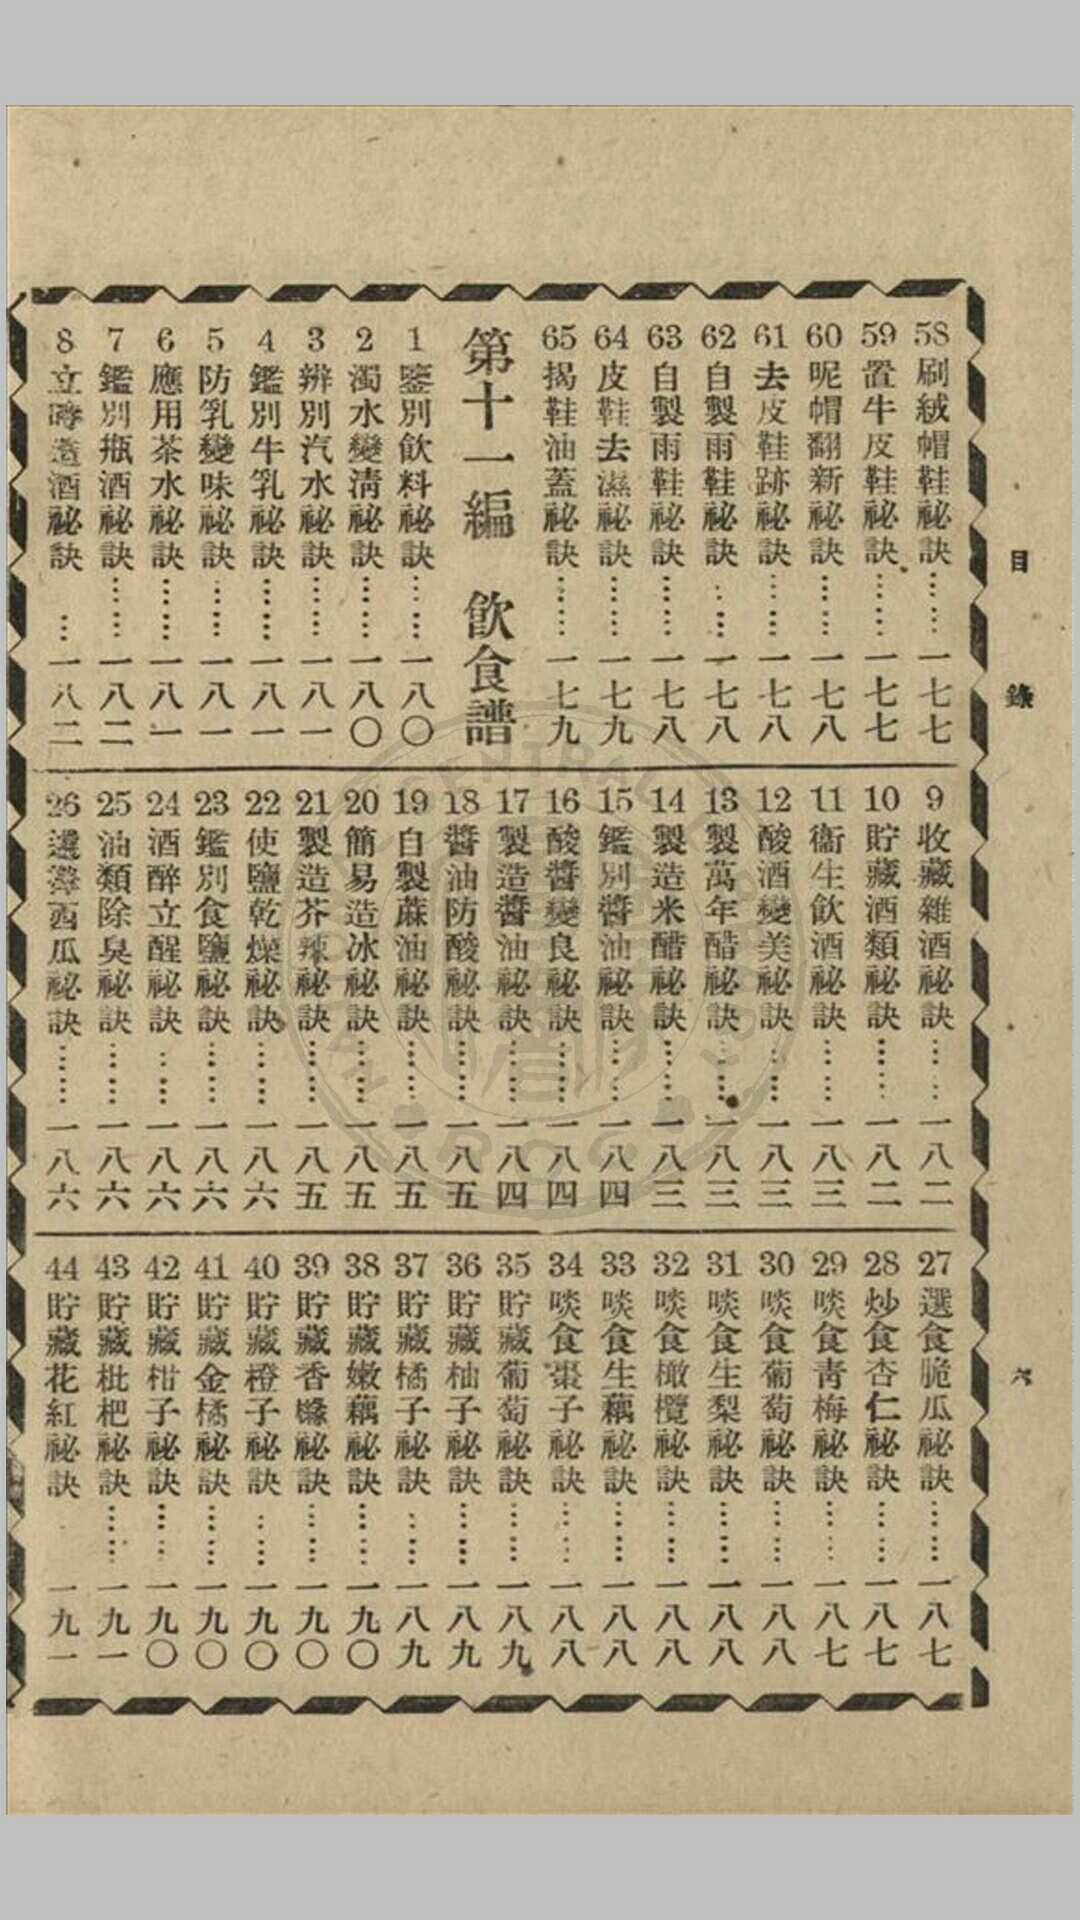 目錄
六
58刷絨帽鞋祕訣……一七七
59置牛皮鞋祕訣……一七七
60呢帽翻新祕訣……一七八
61去皮鞋跡祕訣……一七八
62自製雨鞋祕訣……一七八
63自製雨鞋祕訣……一七八
64皮鞋去濕祕訣……一七九
65揭鞋油蓋祕訣……一七九
第十一編　飲食譜
1鑒別飲料祕訣……一八〇
2濁水變清祕訣……一八〇
3辨別汽水祕訣……一八一
4鑑別牛乳祕訣……一八一
5防乳變味祕訣……一八一
6應用茶水祕訣……一八一
7鑑別瓶酒祕訣……一八二
8立時造酒祕訣…一八二
9收藏雜酒祕訣……一八二
10貯藏酒類祕訣……一八二
11衞生飲酒祕訣……一八三
12酸酒變美祕訣……一八三
13製萬年醋祕訣……一八三
14製造米醋祕訣……一八三
15鑑別醬油祕訣……一八四
16酸醬變良祕訣……一八四
17製造醬油祕訣……一八四
18醬油防酸祕訣……一八五
19自製蔴油祕訣……一八五
20簡易造冰祕訣……一八五
21製造芥辣祕訣……一八五
22使鹽乾燥祕訣……一八六
23鑑別食鹽祕訣……一八六
24酒醉立醒祕訣……一八六
25油類除臭祕訣……一八六
26選擇西瓜祕訣……一八六
27選食脆瓜祕訣……一八七
28炒食杏仁祕訣……一八七
29啖食青梅祕訣……一八七
30啖食葡萄祕訣……一八八
31啖食生梨祕訣……一八八
32啖食橄欖祕訣……一八八
33啖食生藕祕訣……一八八
34啖食棗子祕訣……一八八
35貯藏葡萄祕訣……一八九
36貯藏柚子祕訣……一八九
37貯藏橘子祕訣……一八九
38貯藏嫩藕祕訣……一九〇
39貯藏香櫞祕訣……一九〇
40貯藏橙子祕訣……一九〇
41貯藏金橘祕訣……一九〇
42貯藏柑子祕訣……一九〇
43貯藏枇杷祕訣……一九一
44貯藏花紅祕訣　一九一